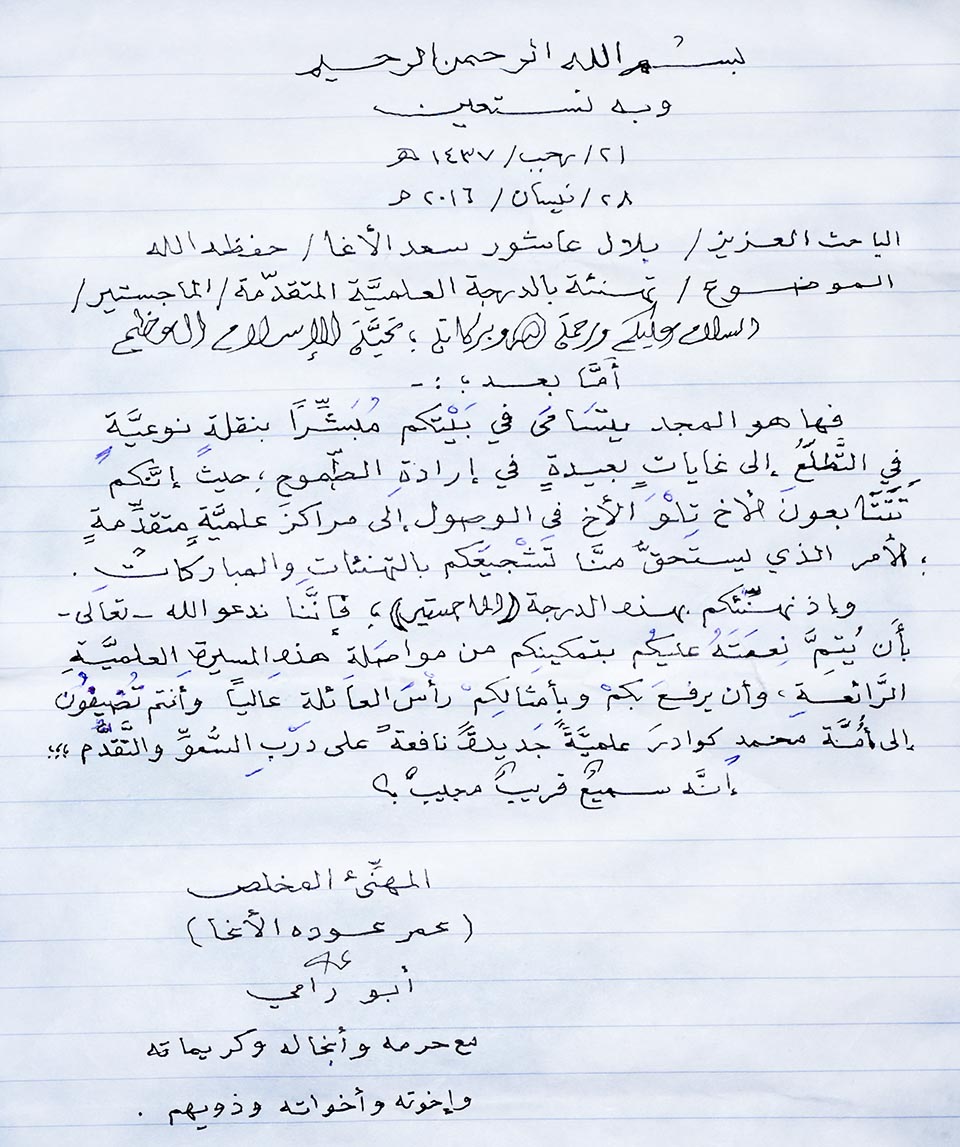 بسم الله الرحمن الرحيم
وبه نستعين
٢١/رجب/١٤٣٧ هـ
٢٨/نيسان/٢٠١٦ م
الباحث العزيز/ بلال عاشور سعد الأغا/ حفظه الله
الموضوع/ تهنئة بالدرجة العلميَّة المتقدّمة/الماجستير/
السلام عليكم ورحمة الله وبركاته ؛ تحيَّة الإسلام العظيم
أمَّا بعد ؛ :-
فها هو المجد يتسَامَى في بَيْتكم مُبَشِّرًا بنقلةٍ نوعيَّةٍ
في التَّطلُّعُ إلى غاياتٍ بعيدةٍ في إرادةِ الطّموحِ ، حيثُ إنَّكم
تَتَتَابعونَ الأخ تِلْوَ الأخ في الوصول إلى مراكزَ علميَّةٍ متقدِّمةٍ
، الأمر الذي يستحقُّ منَّا تَشْجيعَكم بالتهنئاتِ والمباركاتْ .
وإذ نهنّئكم بهذه الدرجة (الماجستير) ؛ فإنَّنا ندعو الله -تعَالَى-
بأَن يُتمَّ نِعمَتَهُ عليكُم بتمكينِكم من مواصَلة هذه المسيرةِ العلميَّةِ
الرَّائعَةِ ، وأن يرفعَ بكمْ وبأمثَالِكمْ رأسَ العَائلة عَالياً وأنتم تُضيفُون
إلى أُمَّة محمد كوادرَ علميَّةً جَديدةً نافعةً على درْبِ السُّموِّ والتَّقَدُّم ؛؛؛
إنَّه سميعٌ قريبٌ مجليبٌ ؟
المهنِّئ المخلص
(عمر عوده الأغا)
أبو رامي
مع حرمه وأنجاله وكريماته
وإخوته وأخواته وذويهم .